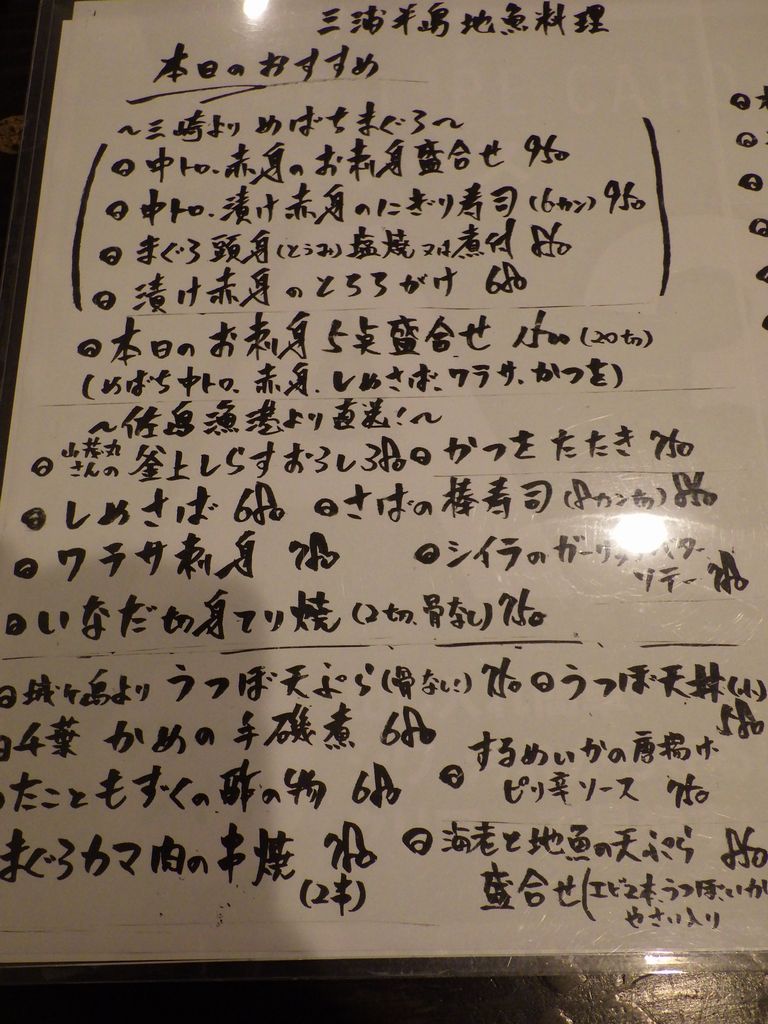 三浦半島地魚料理
本日のおすすめ
～三崎より めばちまぐろ～
中トロ、赤身のお刺身盛合せ 950
中トロ、漬け赤身のにぎり寿司(6カン) 950
まぐろ頭身(とうみ)塩焼又は煮付 850
漬け赤身のとろろがけ 680
本日のお刺身5点盛合せ 1500(20切)
(めばち中トロ、赤身、しめさば、ワラサ、かつを)
～佐島漁港より直送!～
山茂丸さんの 釜上しらすおろし 380 かつをたたき 750
しめさば 680 さばの棒寿司(8カン切) 850
ワラサ刺身 780 シイラのガーリックバター
ソテー 780
いなだ切身てり焼(2切、骨なし) 750
城ヶ島より うつぼ天ぷら(骨なし!) 750 うつぼ天丼(小)
580
千葉 かめの手磯煮 680
するめいかの唐揚げ
ピリ辛ソース 750
たこともずくの酢の物 680
まぐろカマ肉の串焼 780
(2本)
海老と地魚の天ぷら 850
盛合せ(エビ2本、うつぼ、いか
やさい入り